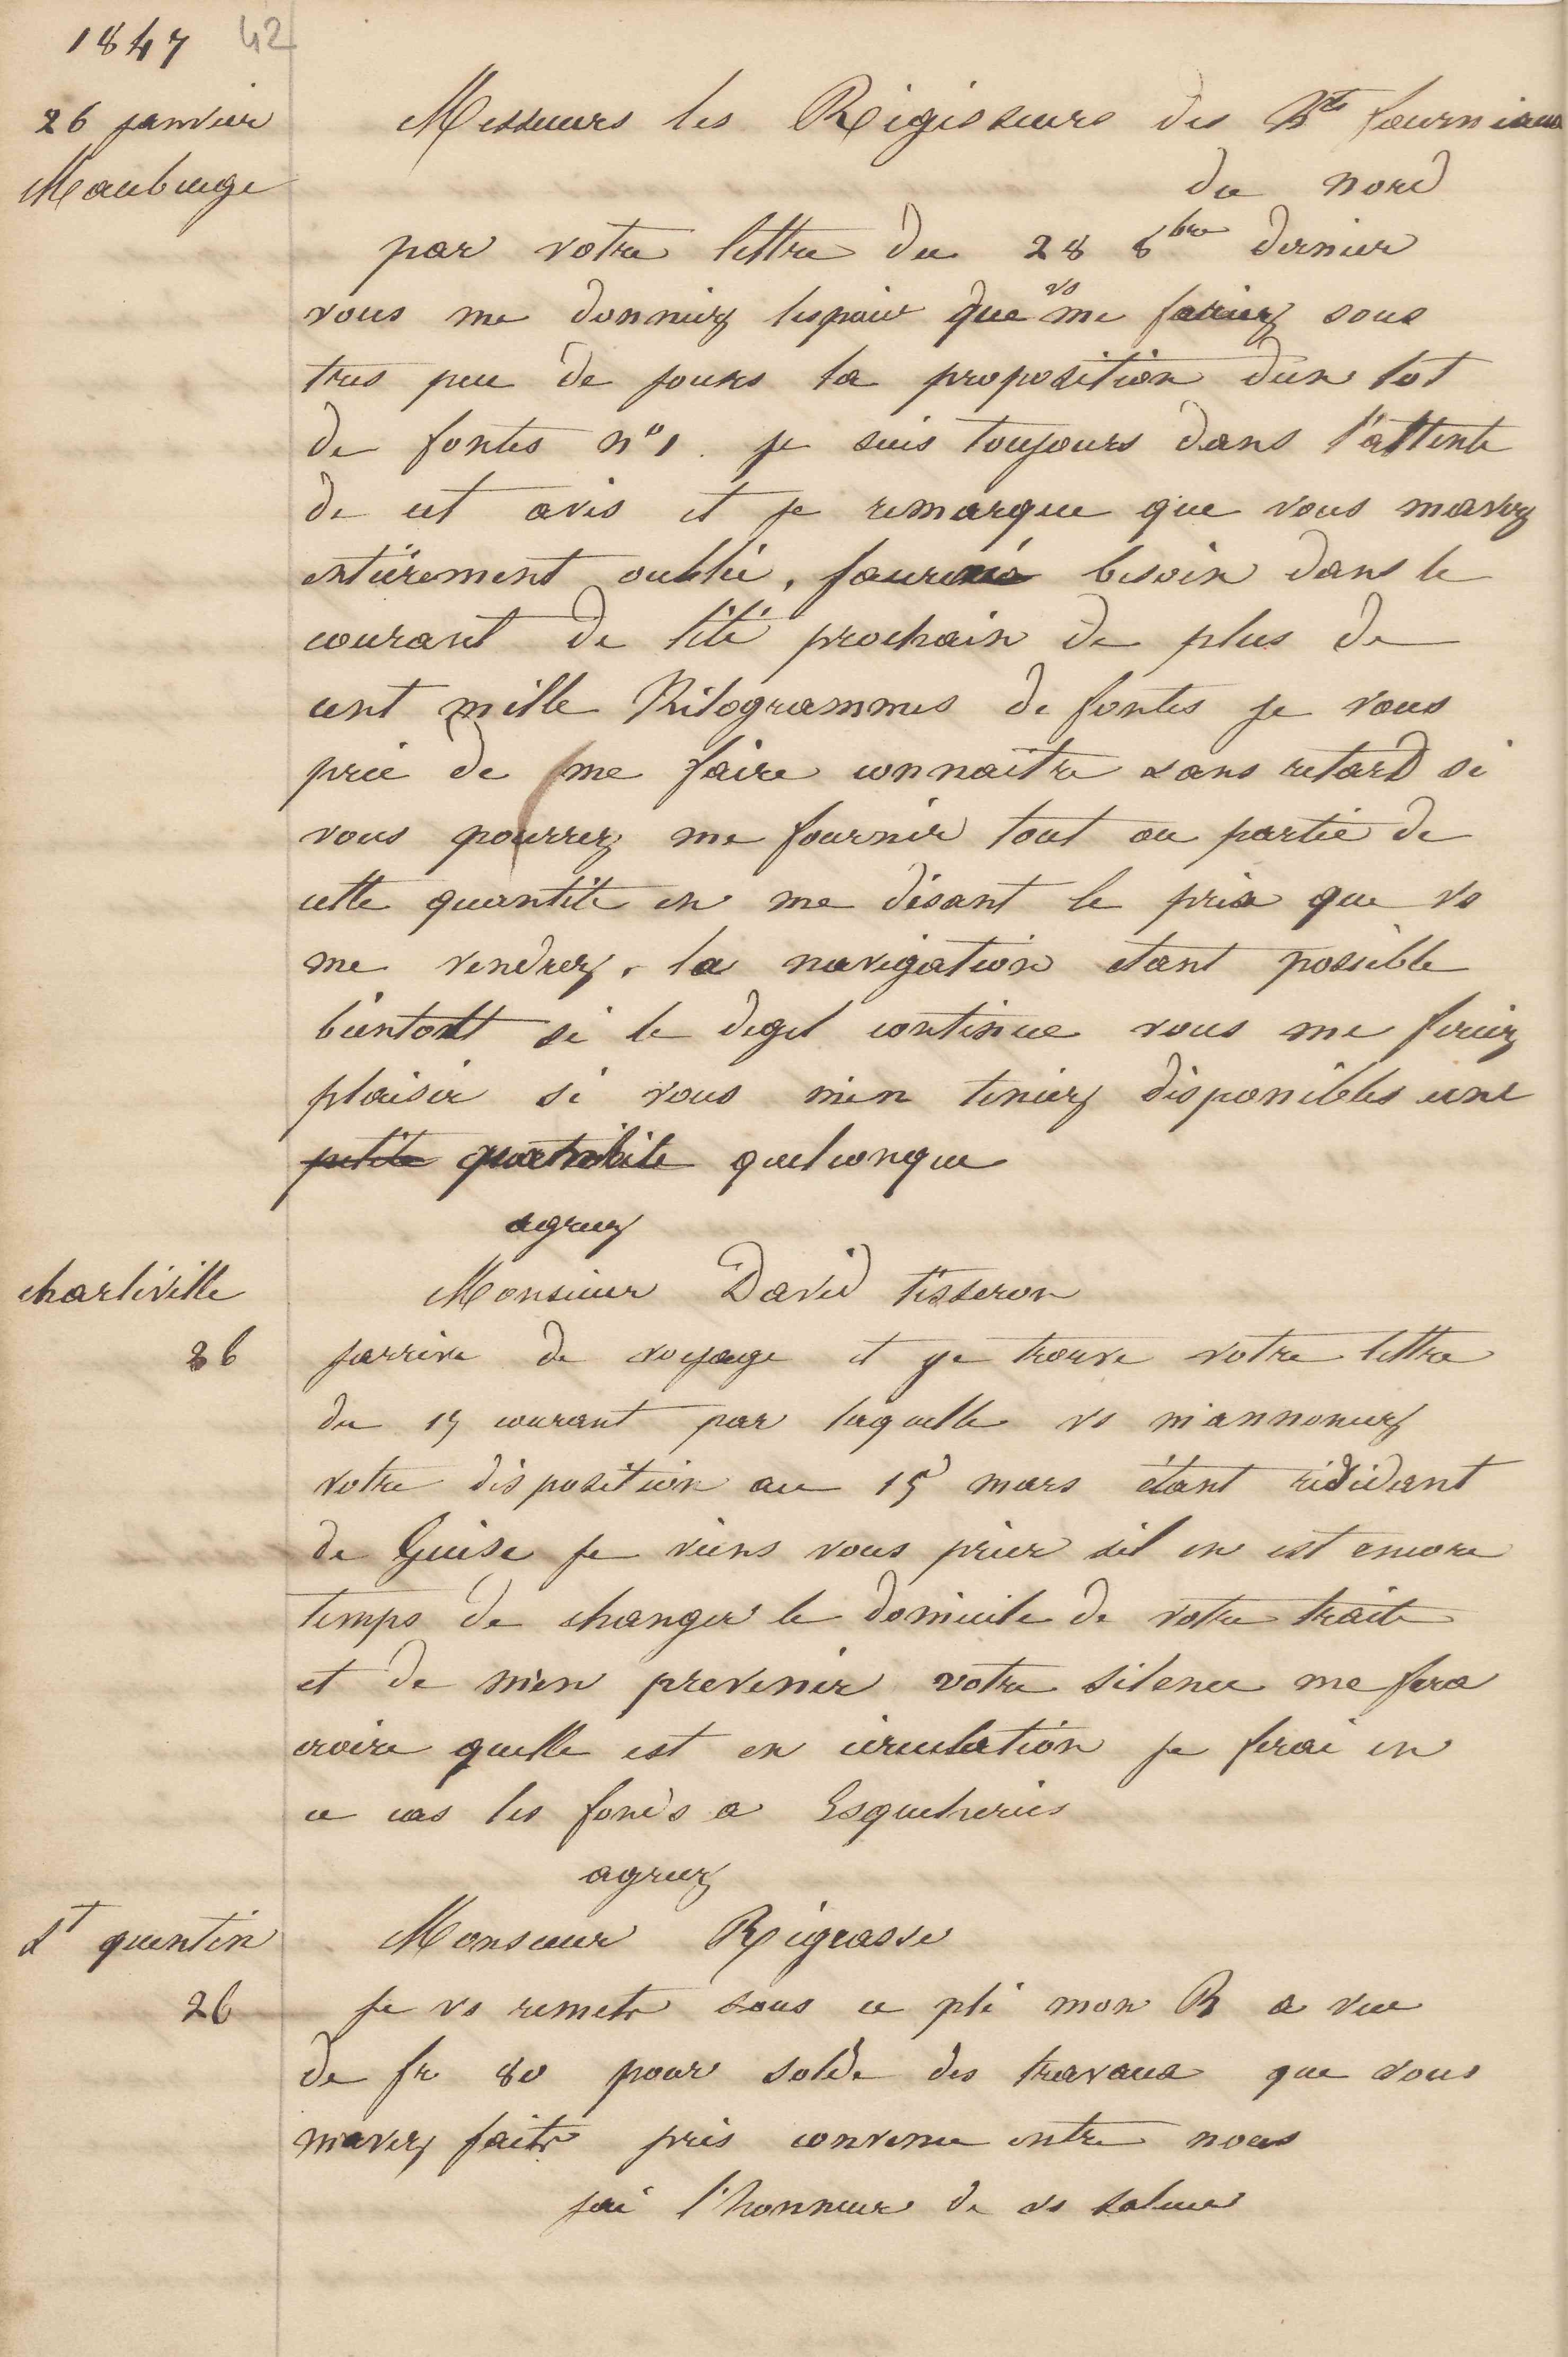 1847 42
26 janvier
Maubeuge
Messieurs les Régisseurs des hts fourniaux
du nord
par votre lettre du 28 8bre dernier
vous me donniez lespoir que vs me feriez sous
tres peu de jours la proposition dun lot
de fontes n° 1. je suis toujours dans l'attente
de cet avis et je remarque que vous mavez
entièrement oublié, jaurai besoin dans le
courant de lété prochain de plus de
cent mille Kilogrammes de fontes je vous
prie de me faire connaitre sans retard si
vous pourrez me fournir tout ou partie de
cette quantité en me disant le prix que vs
me vendrez. la navigation etant possible
bientott si le degel continue vous me feriez
plaisir si vous men teniez disponibles une
petite quantité quelconque
agreez
charleville
Monsieur David tisseron
26
jarrive de voyage et je trouve votre lettre
du 15 courant par laquelle vs m'annoncez
votre disposition au 15 mars étant résidant
de Guise je viens vous prier sil en est encore
temps de changer le domicile de votre traite
et de men prevenir votre silence me fera
croire quelle est en circulation je ferai en
ce cas les fonds a Esqueheries
agreez
st quentin
Monsieur Régrasse
26
je vs remets sous ce pli mon B a vue
de fr 80 pour solde des travaux que vous
mavez faits prix convenu entre nous
jai l'honneur de vs saluer